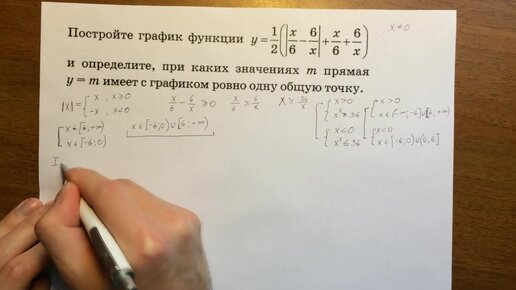 Постройте график функции y = 1/2(|x/6 − 6/x| + x/6 + 6/x)
x≠0
и определите, при каких значениях m прямая
y = m имеет с графиком ровно одну общую точку.
|x| = { x, x≥0
{ -x, x<0
x/6 − 6/x ≥ 0
x/6 ≥ 6/x
x ≥ 36/x
[ { x>0
{ x² ≥ 36
{ x<0
{ x² ≤ 36
[ { x>0
{ x∈(-∞;-6]∪[6;+∞)
{ x<0
{ x∈[-6;0)∪(0;6]
[ x∈[6;+∞)
x∈[-6;0)
x∈[-6;0)∪[6;+∞)
I